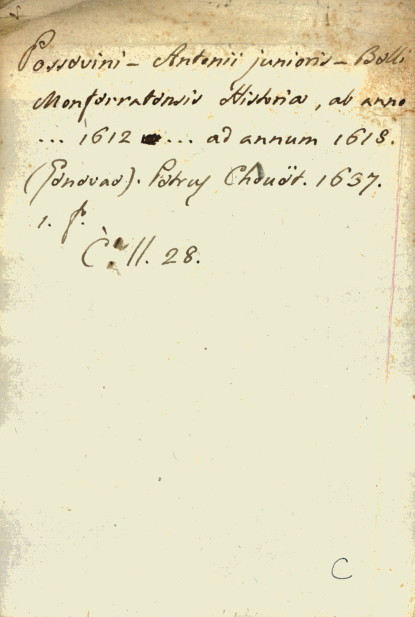 Possevini - Antonii junioris - Belli
Monferratensis Historia, ab anno
... 1612 ... ad annum 1618.
(Genevae). Petrus Chouët. 1637.
1. f.
C. 11. 28.
C